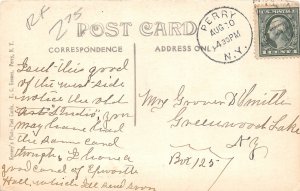 RK
2 75
POST CARD
CORRESPONDENCE
ADDRESS ONLY
PERRY
AUG 10
4 30 PM
N.Y.
1 CENT 1
Isn't this good
of the west side
notice the old
Art Studio, you
may leave and
the same card
though, I have a
good card of Epworth
Hall, which I'll send soon
Mrs Grover D Smith
Greenwood Lake
N.Y.
Box 125